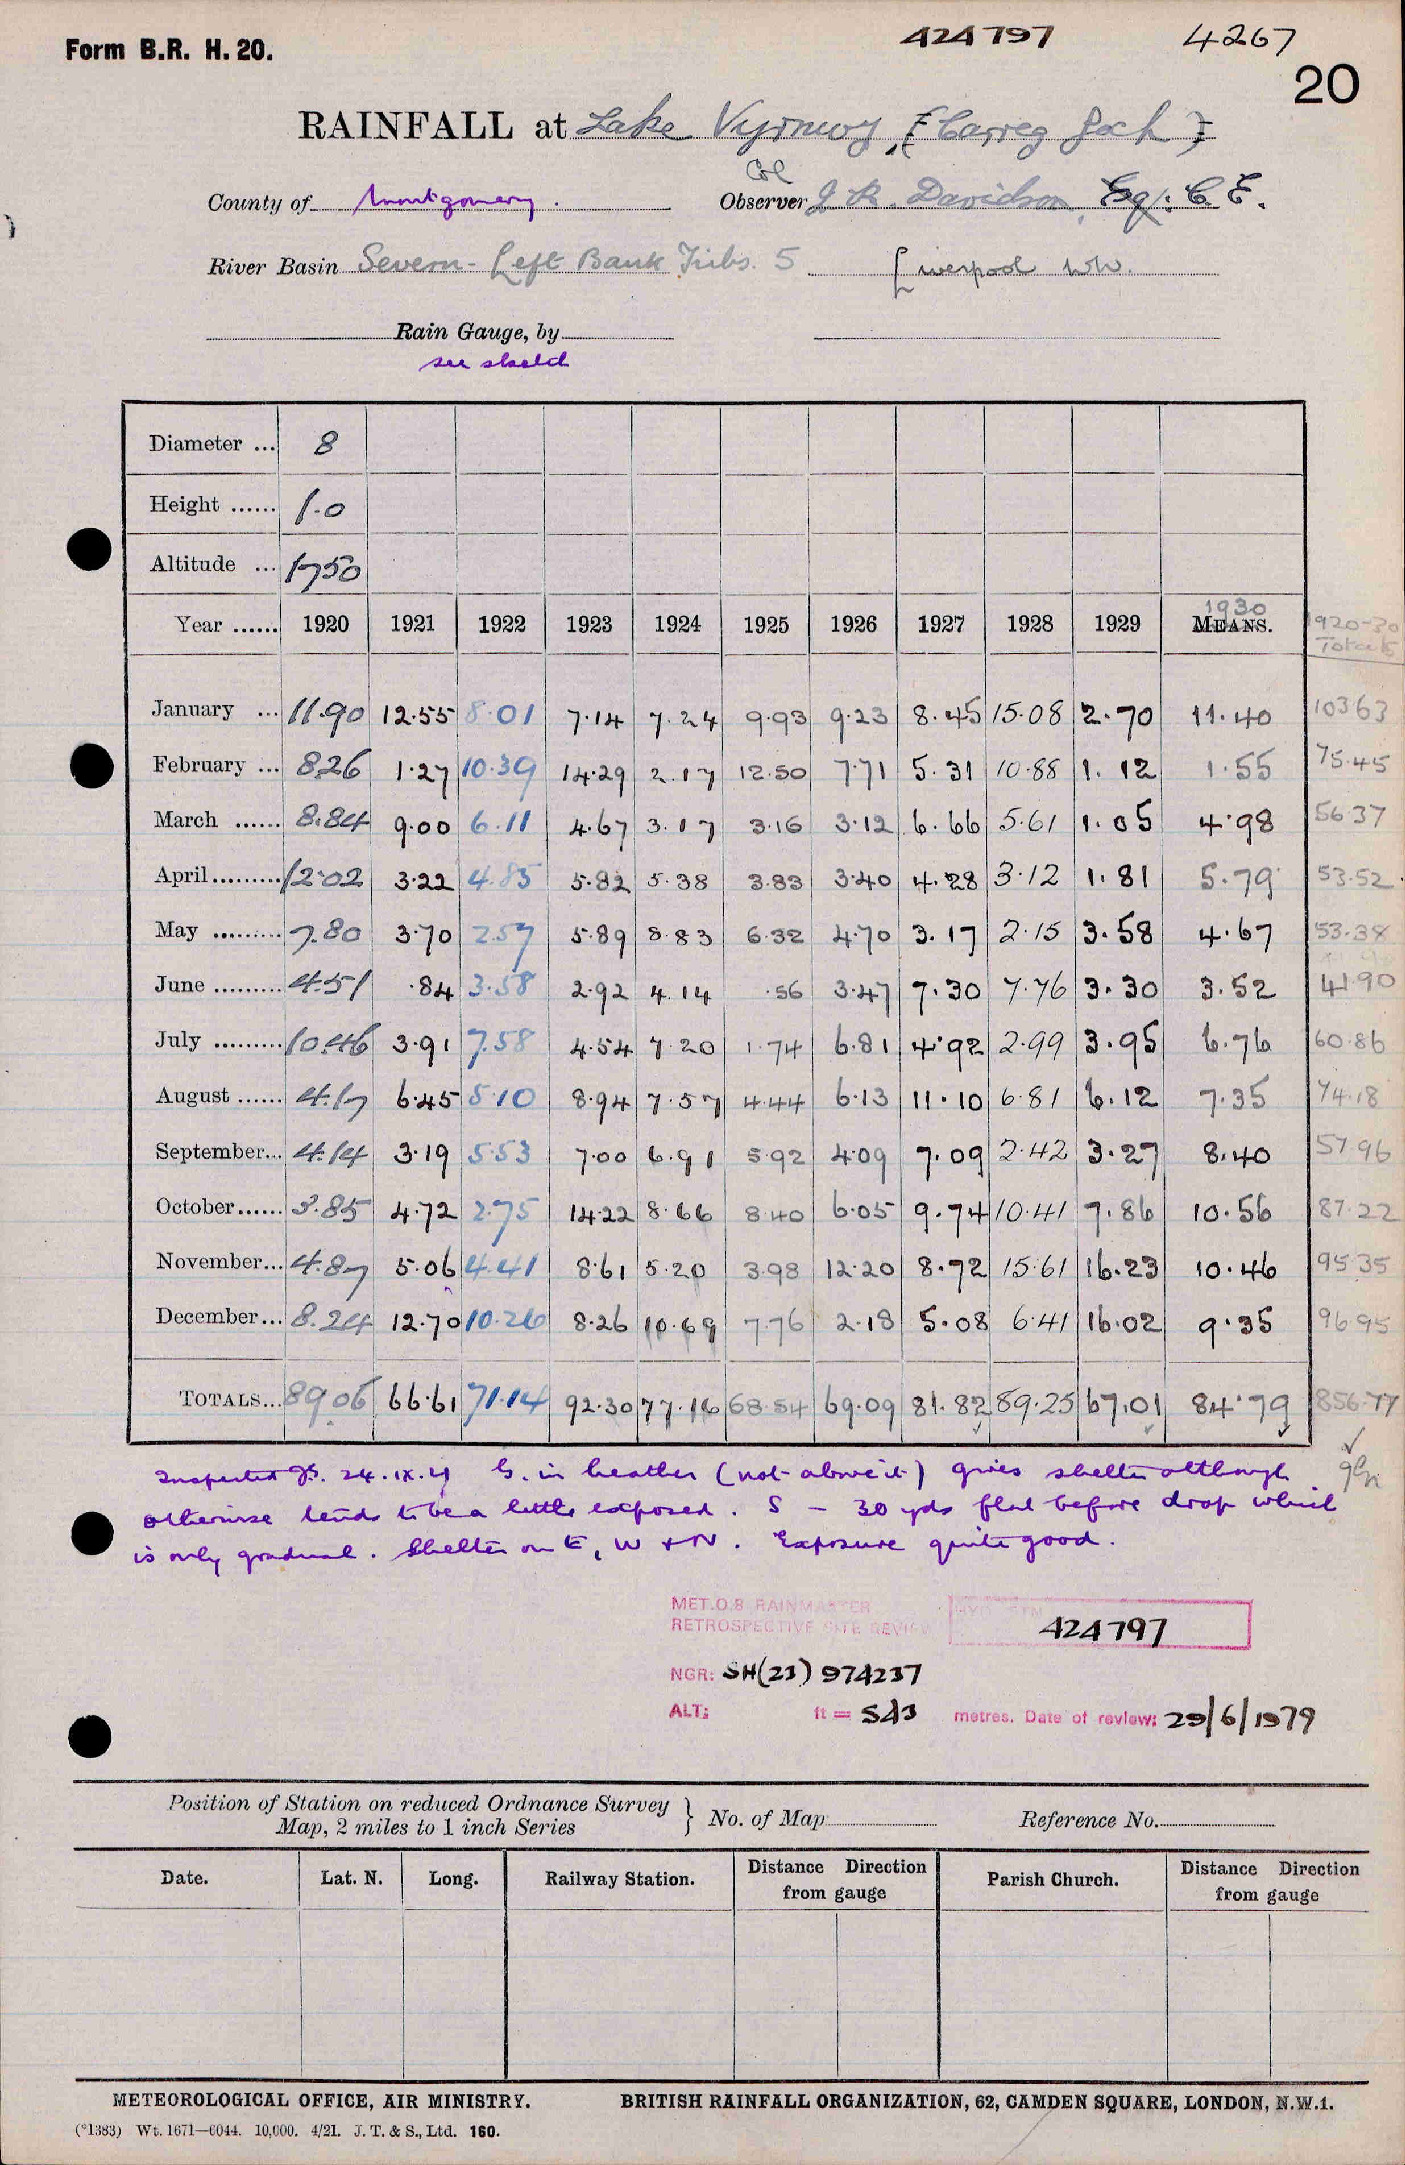 Form B.R. H. 20.
424797 4267
20
RAINFALL at Lake Vyrnwy, (Carreg Goch)
Col
County of Montgomery. Observer J R. Davidson, Esq: C. E.
River Basin Severn - Left Bank Tribs. 5 Liverpool WW.
Rain Gauge, by
see sheet
Diameter ... 8
Height ...... 1.0
Altitude ... 1750
Year ...... 1920 1921 1922 1923 1924 1925 1926 1927 1928 1929 MEANS. 1930 1920-30 Totals
January ... 11.90 12.55 8.01 7.14 7.24 9.93 9.23 8.45 15.08 2.70 11.40 103 63
February ... 8.26 1.27 10.39 14.29 2.17 12.50 7.71 5.31 10.88 1.12 1.55 75.45
March ...... 8.84 9.00 6.11 4.67 3.17 3.16 3.12 6.66 5.61 1.05 4.98 56.37
April ......... 12.02 3.22 4.85 5.82 5.38 3.83 3.40 4.28 3.12 1.81 5.79 53.52
May ......... 7.80 3.70 2.57 5.89 8.83 6.32 4.70 3.17 2.15 3.58 4.67 53.38
June ......... 4.51 .84 3.58 2.92 4.14 .56 3.47 7.30 7.76 3.30 3.52 41.90
July ......... 10.46 3.91 7.58 4.54 7.20 1.74 6.81 4.92 2.99 3.95 6.76 60.86
August ...... 4.17 6.45 5.10 8.94 7.57 4.44 6.13 11.10 6.81 6.12 7.35 74.18
September... 4.14 3.19 5.53 7.00 6.91 5.92 4.09 7.09 2.42 3.27 8.40 57.96
October...... 3.85 4.72 2.75 14.22 8.66 8.40 6.05 9.74 10.41 7.86 10.56 87.22
November... 4.87 5.06 4.41 8.61 5.20 3.98 12.20 8.72 15.61 16.23 10.46 95.35
December... 8.24 12.70 10.26 8.26 10.69 7.76 2.18 5.08 6.41 16.02 9.35 96.95
TOTALS... 89.06 66.61 71.14 92.30 77.16 68.54 69.09 81.82 89.25 67.01 84.79 856.77
Inspected 24.IX.41 G. in heather (not above it) gives shelter although
otherwise tends to be a little exposed. S - 30 yds flat before drop which
is only gradual. Shelter on E, W + N. Exposure quite good.
MET.O.8 RAINMASTER
RETROSPECTIVE SITE REVIEW
HYD STN 424797
NGR: SH(23) 974237
ALT: ft = 533 metres. Date of review: 29/6/1979
Position of Station on reduced Ordnance Survey
Map, 2 miles to 1 inch Series } No. of Map Reference No.
Date. Lat. N. Long. Railway Station. Distance Direction from gauge Parish Church. Distance Direction from gauge
METEOROLOGICAL OFFICE, AIR MINISTRY. BRITISH RAINFALL ORGANIZATION, 62, CAMDEN SQUARE, LONDON, N.W.1.
(*1383) Wt. 1671—6044. 10,000. 4/21. J. T. & S., Ltd. 160.